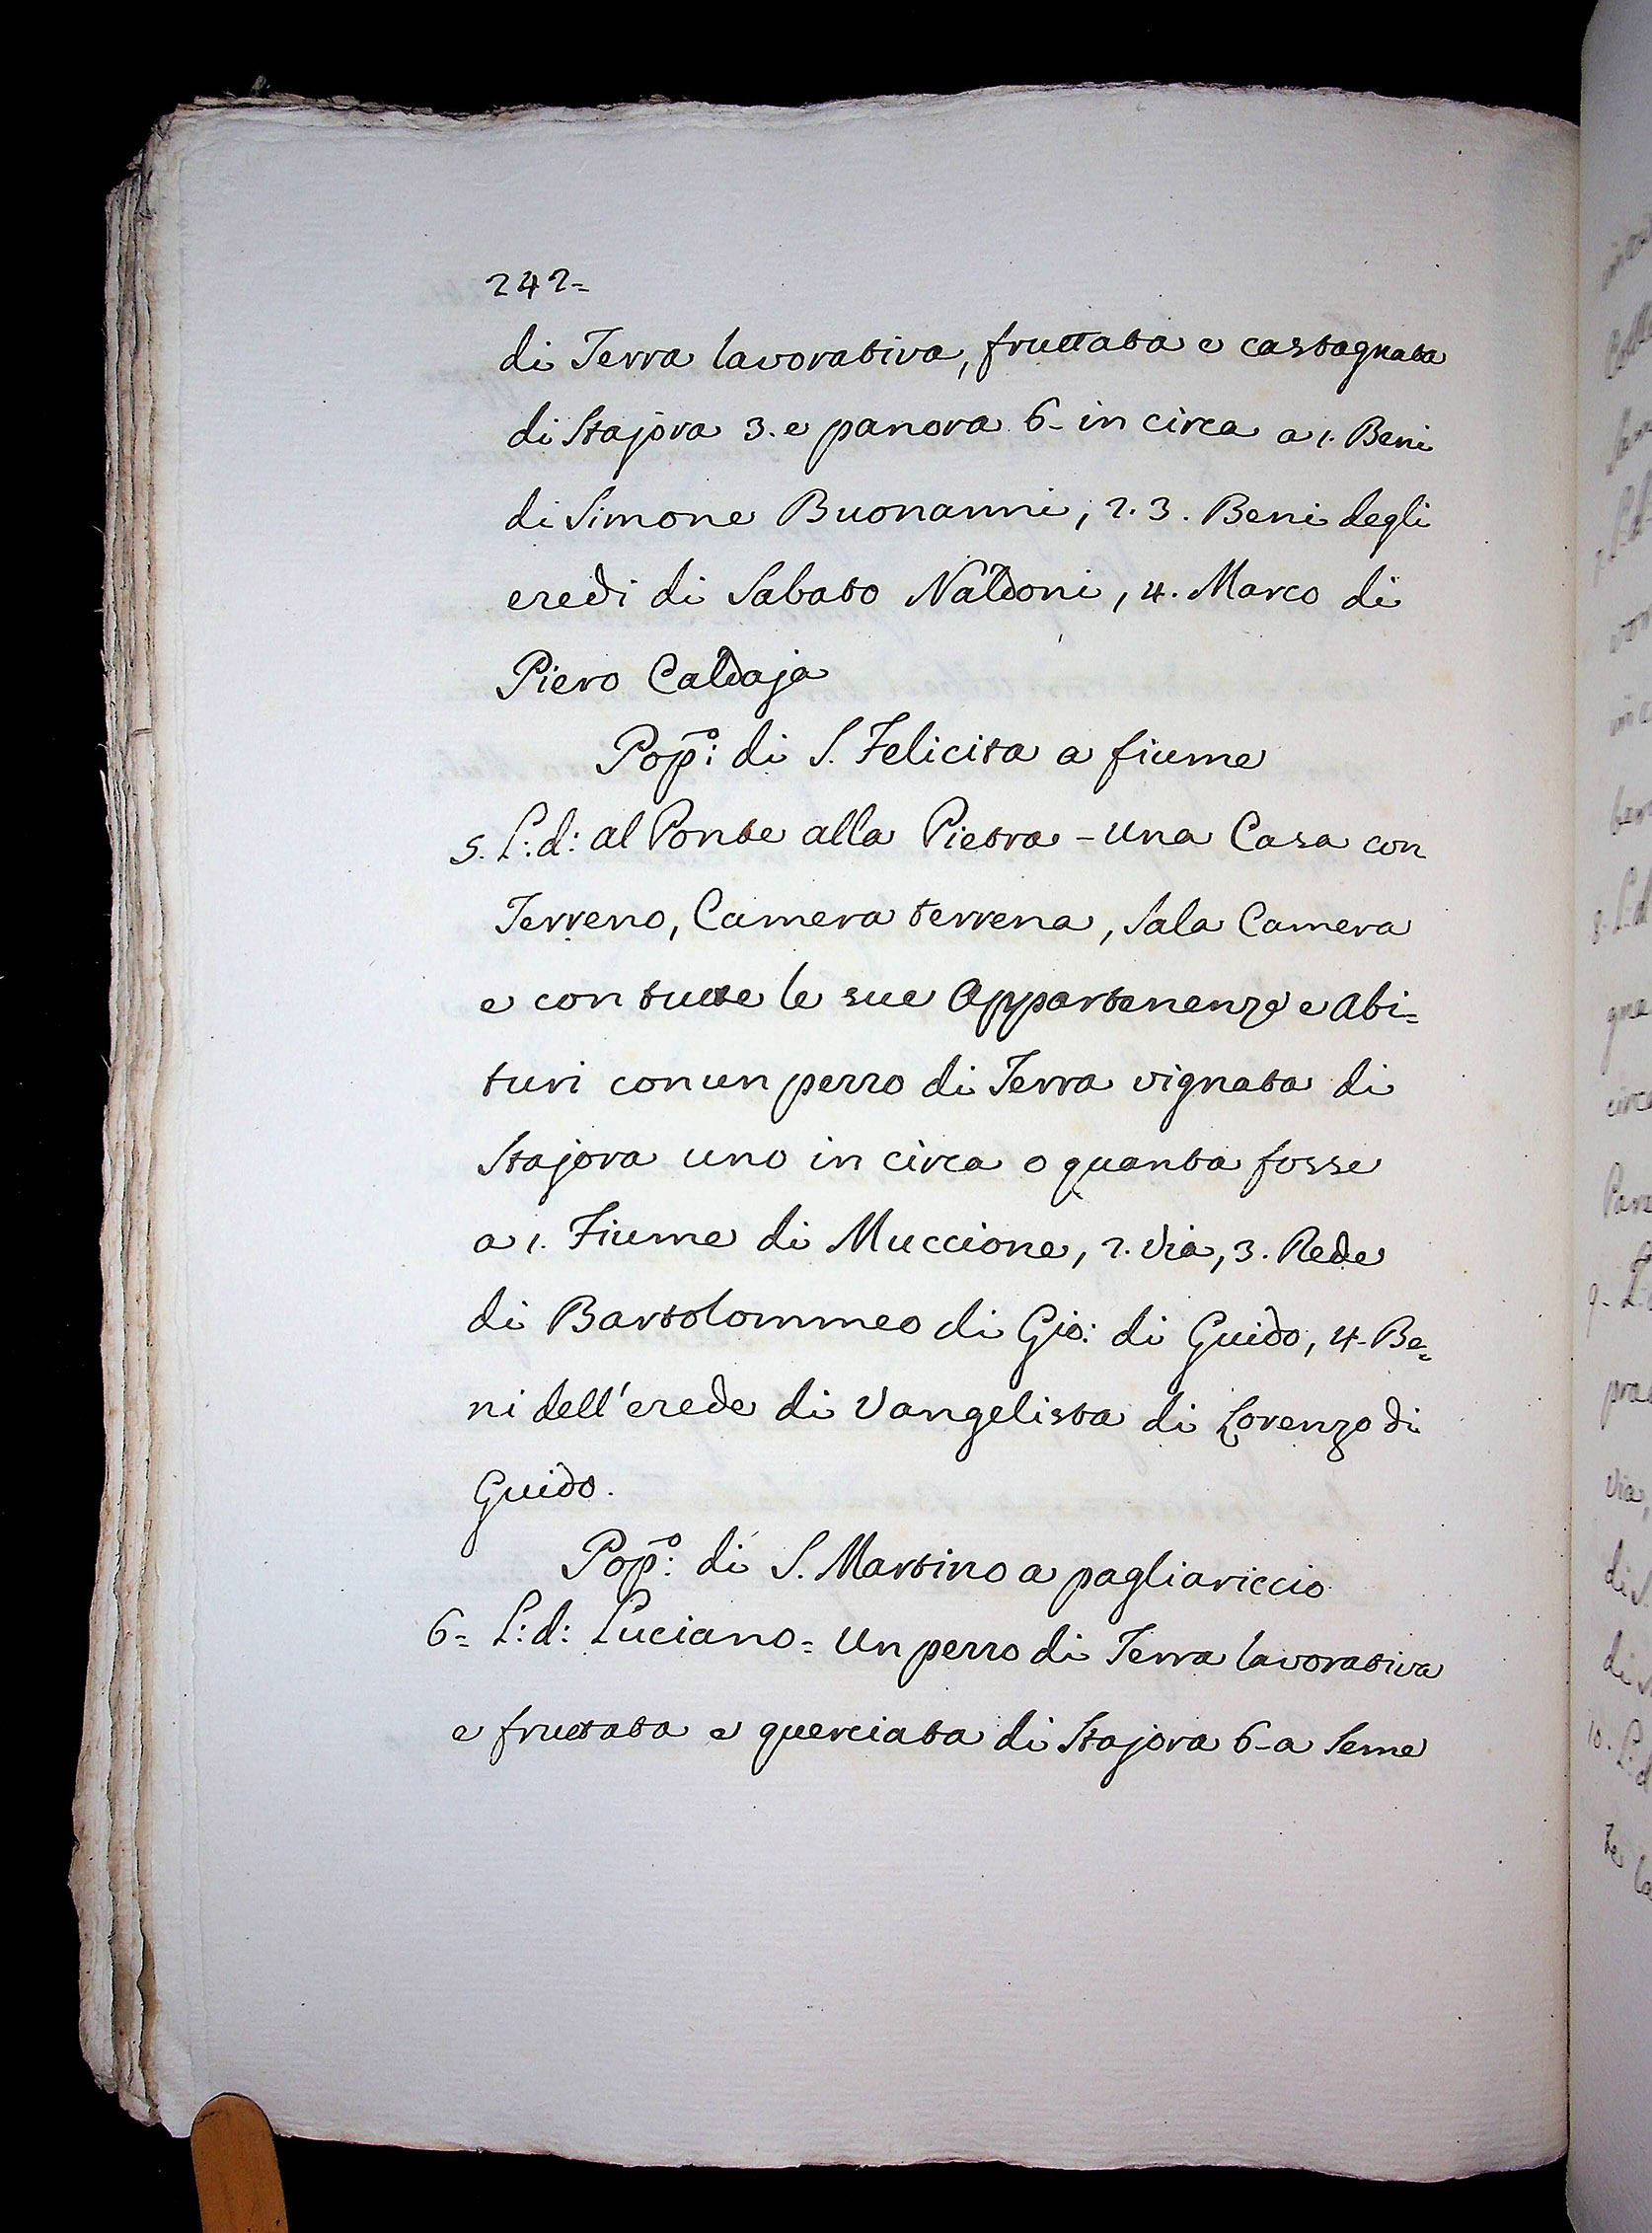 242=
di Terra lavorativa, fruttata e castagnata
di Stajora 3. e panora 6- in circa a 1. Beni
di Simone Buonanni, 2. 3. Beni degli
eredi di Sabato Naldoni, 4. Marco di
Piero Caldaja
Pop̃o: di S. Felicita a fiume
5. L: d: al Ponte alla Pietra - Una Casa con
Terreno, Camera terrena, Sala Camera
e con tutte le sue Appartenenze e Abi=
turi con un pezzo di Terra vignata di
Stajora uno in circa o quanta fosse
a 1. Fiume di Muccione, 2. Via, 3. Rede
di Bartolommeo di Gio: di Guido, 4- Be=
ni dell'erede di Vangelista di Lorenzo di
Guido.
Pop̃o: di S. Martino a pagliariccio
6= L: d: Luciano= Un pezzo di Terra lavorativa
e fruttata e querciata di Stajora 6-a Seme